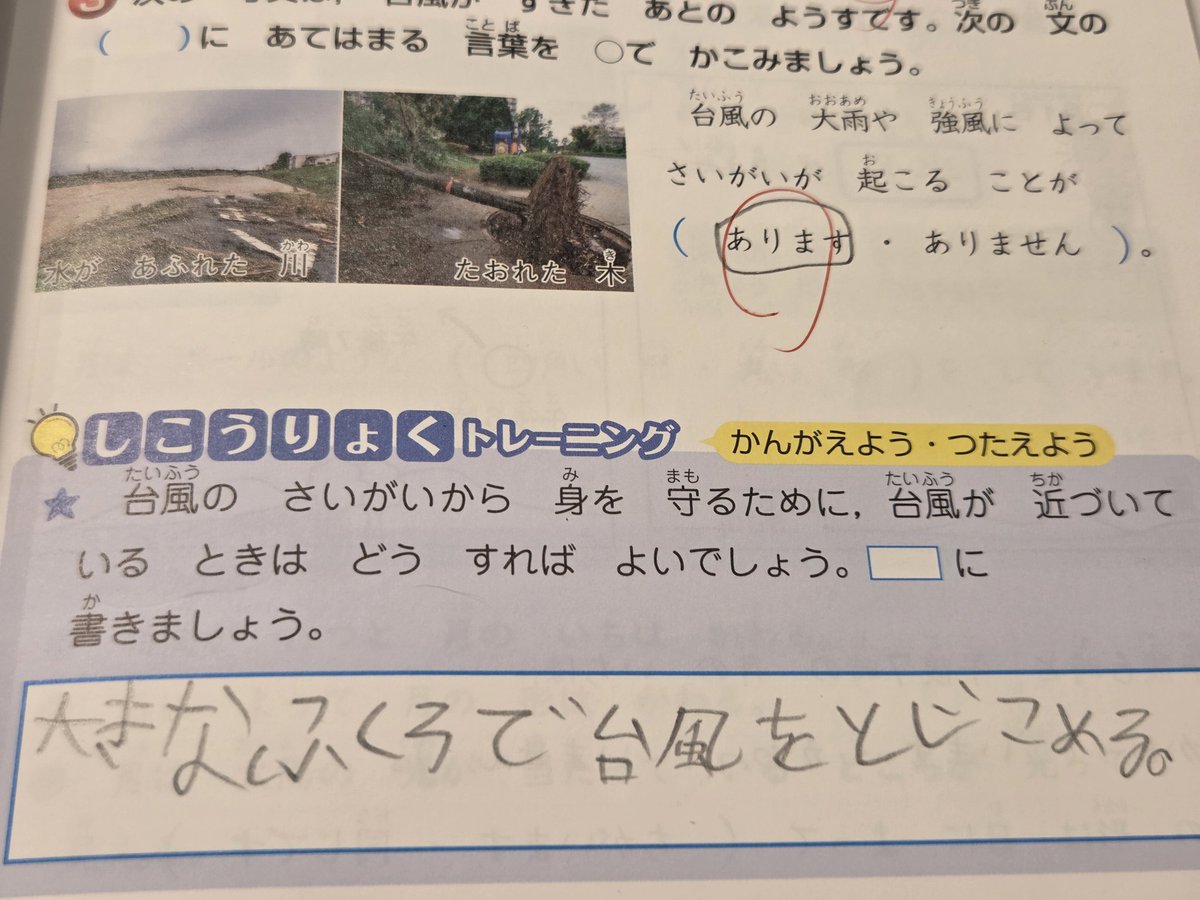 台風が すぎた あとの ようすです。次の 文の
( )に あてはまる 言葉を ○で かこみましょう。
水が あふれた 川
たおれた 木
台風の 大雨や 強風に よって
さいがいが 起こる ことが
( あります ・ ありません )。
しこうりょくトレーニング かんがえよう・つたえよう
★ 台風の さいがいから 身を 守るために,台風が 近づいて
いる ときは どう すれば よいでしょう。 に
書きましょう。
大きなふくろで台風をとじこめる。